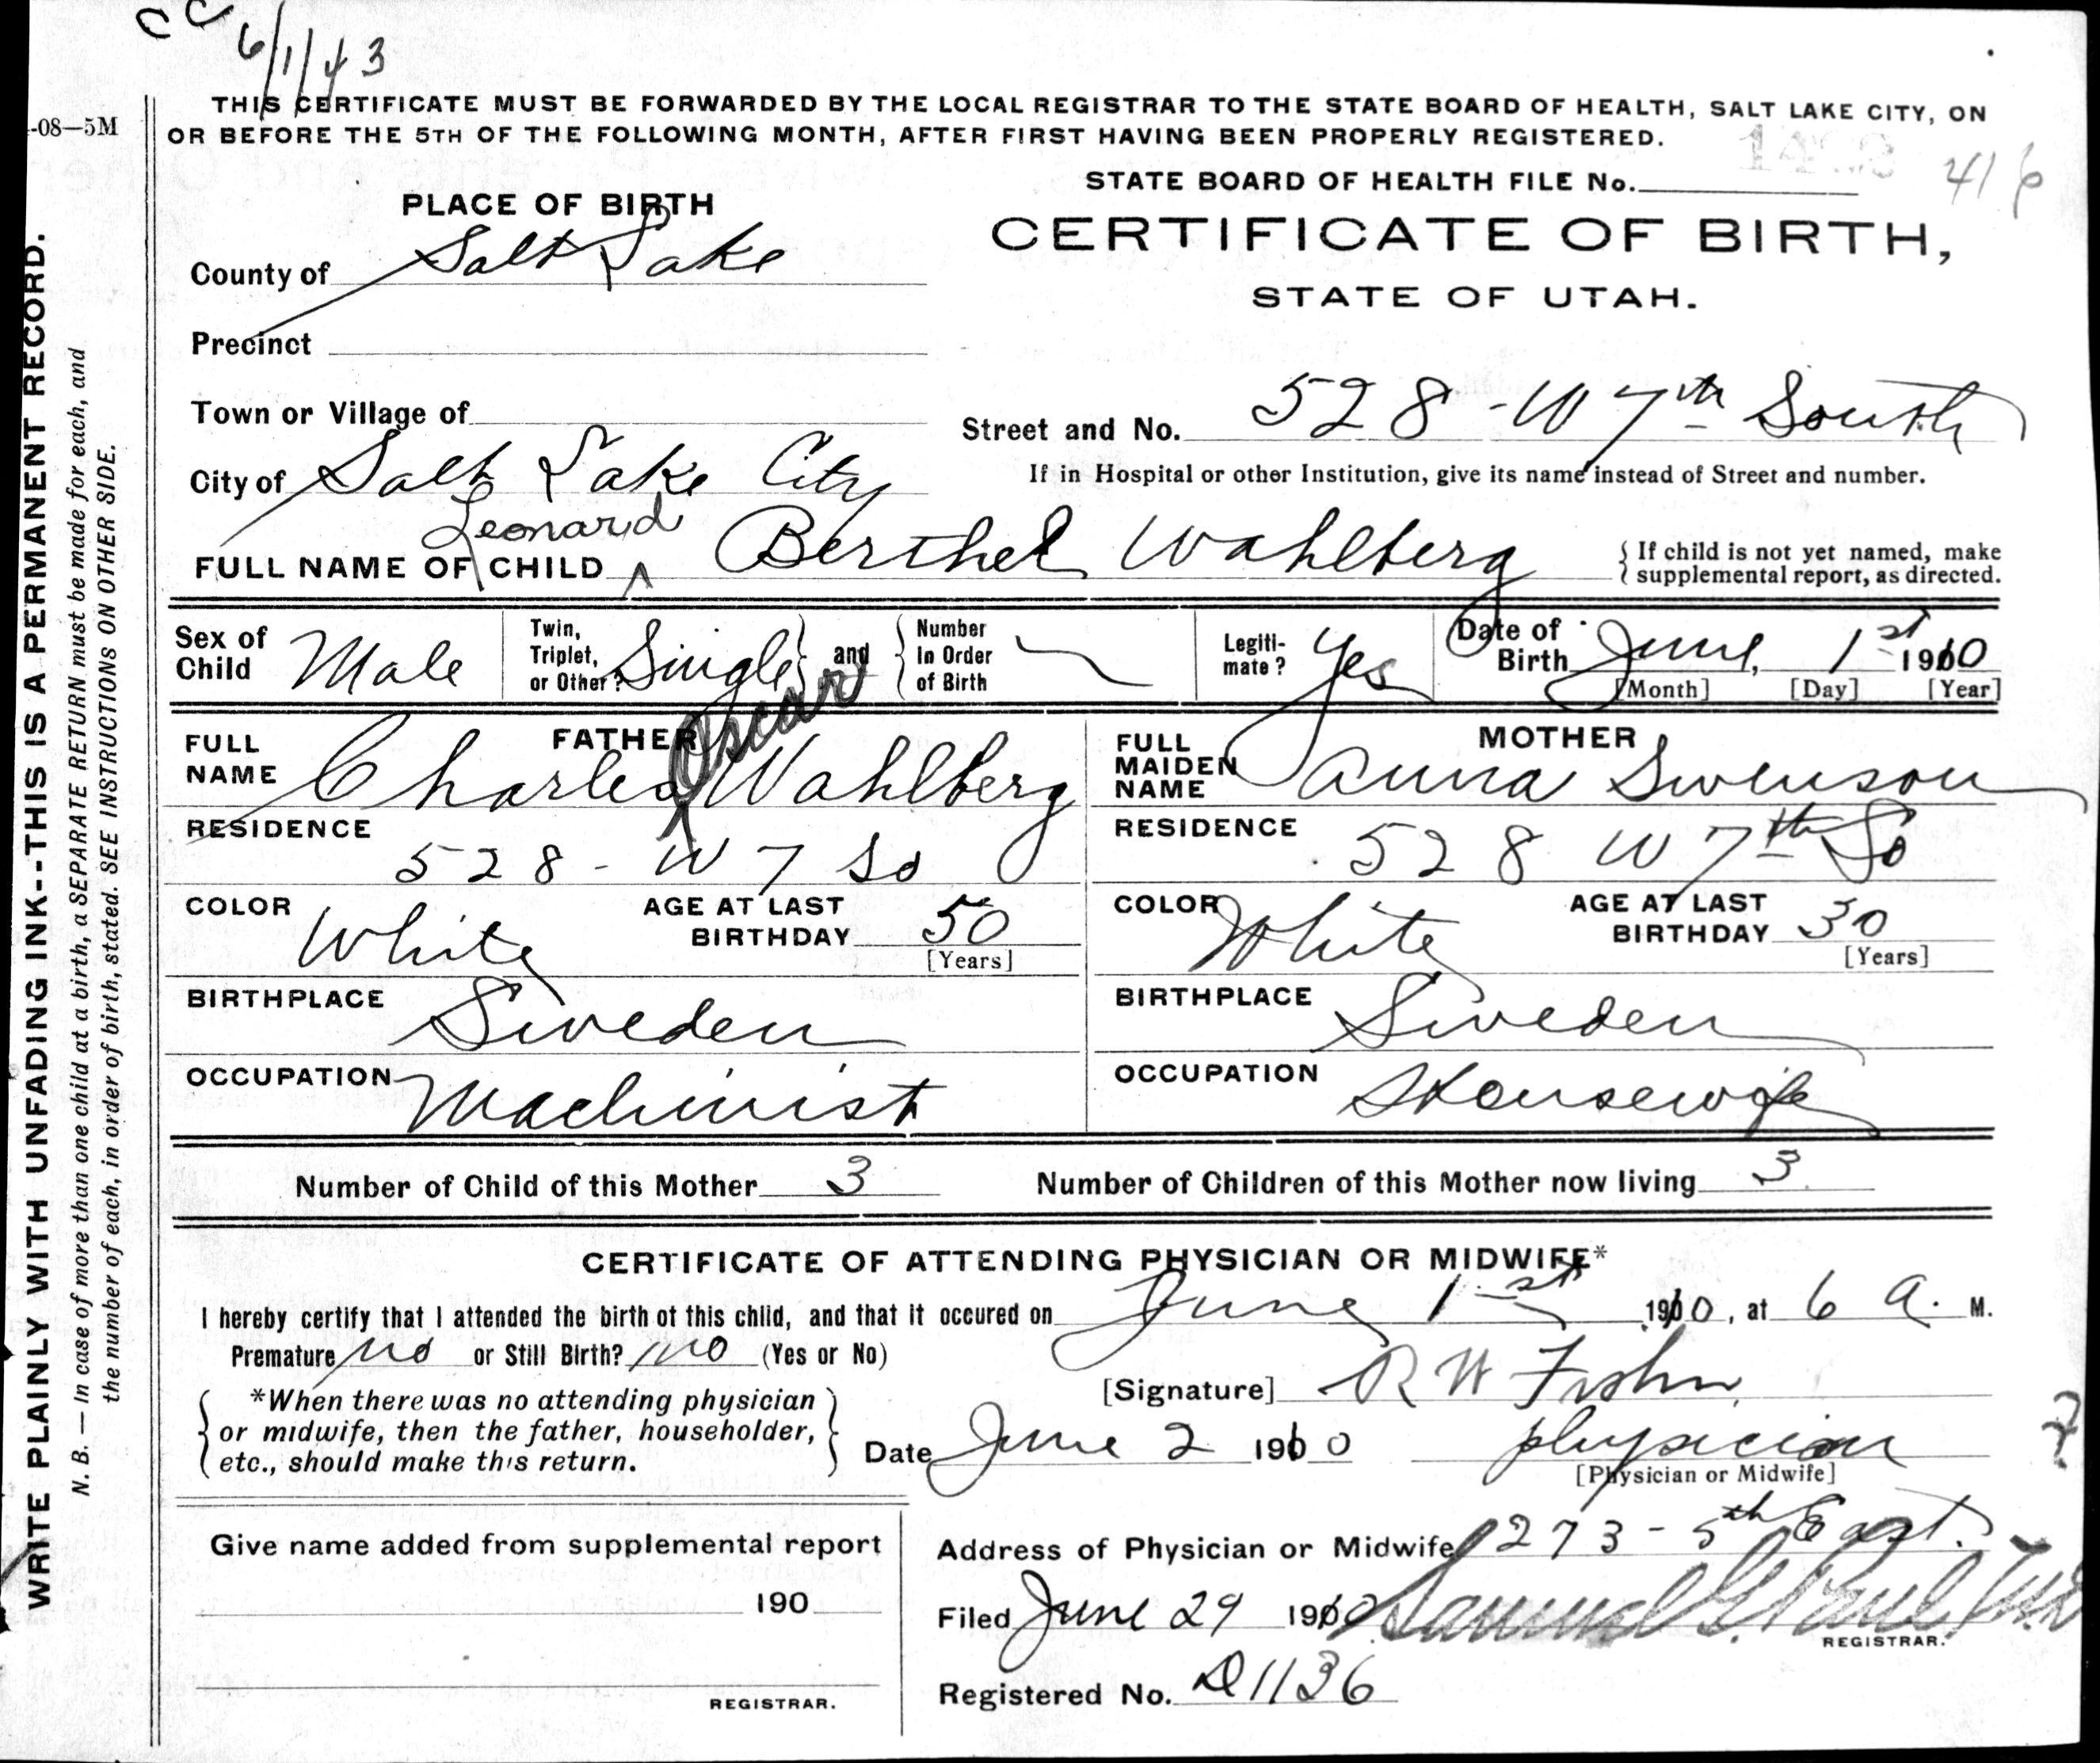 CC 6/1/43
-08—5M
THIS CERTIFICATE MUST BE FORWARDED BY THE LOCAL REGISTRAR TO THE STATE BOARD OF HEALTH, SALT LAKE CITY, ON
OR BEFORE THE 5TH OF THE FOLLOWING MONTH, AFTER FIRST HAVING BEEN PROPERLY REGISTERED.
STATE BOARD OF HEALTH FILE No. 416
PLACE OF BIRTH
CERTIFICATE OF BIRTH,
STATE OF UTAH.
County of Salt Lake
Precinct
Town or Village of
Street and No. 528 - W 7th South
City of Salt Lake City
If in Hospital or other Institution, give its name instead of Street and number.
Leonard
FULL NAME OF CHILD ^ Berthel Wahlberg
{ If child is not yet named, make
supplemental report, as directed.
Sex of Child Male
Twin, Triplet, or Other? Single } and { Number In Order of Birth
Legiti-mate? Yes
Date of Birth June, 1st 1910
[Month] [Day] [Year]
FATHER
FULL NAME Charles Oscar Wahlberg
RESIDENCE 528 - W 7 So
COLOR White AGE AT LAST BIRTHDAY 50 [Years]
BIRTHPLACE Sweden
OCCUPATION Machinist
MOTHER
FULL MAIDEN NAME Anna Swenson
RESIDENCE 528 W 7th So
COLOR White AGE AT LAST BIRTHDAY 30 [Years]
BIRTHPLACE Sweden
OCCUPATION Housewife
Number of Child of this Mother 3 Number of Children of this Mother now living 3
CERTIFICATE OF ATTENDING PHYSICIAN OR MIDWIFE*
I hereby certify that I attended the birth of this child, and that it occured on June 1st 1910, at 6 A. M.
Premature no or Still Birth? no (Yes or No)
*When there was no attending physician
or midwife, then the father, householder,
etc., should make this return.
[Signature] R W
Date June 2 1910 physician
[Physician or Midwife]
Give name added from supplemental report
190
REGISTRAR.
Address of Physician or Midwife 273 - 5th East.
Filed June 29 1910 Samuel G. Paul
REGISTRAR.
Registered No. D1136
WRITE PLAINLY WITH UNFADING INK--THIS IS A PERMANENT RECORD.
N. B. — In case of more than one child at a birth, a SEPARATE RETURN must be made for each, and
the number of each, in order of birth, stated. SEE INSTRUCTIONS ON OTHER SIDE.